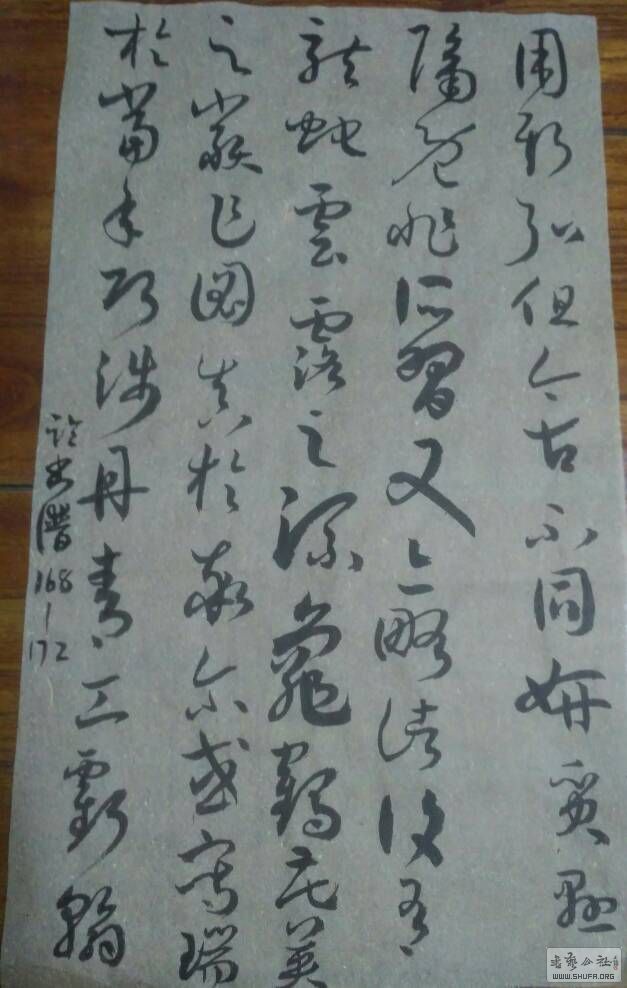 用斯弘但今古不同妍質懸
隔既非所習又亦略諸復有
龍蛇雲露之流龜鶴花英
之類乍圖真於率爾或寫瑞
於當年巧涉丹青工虧翰
临书谱168-172
WWW.SHUFA.ORG